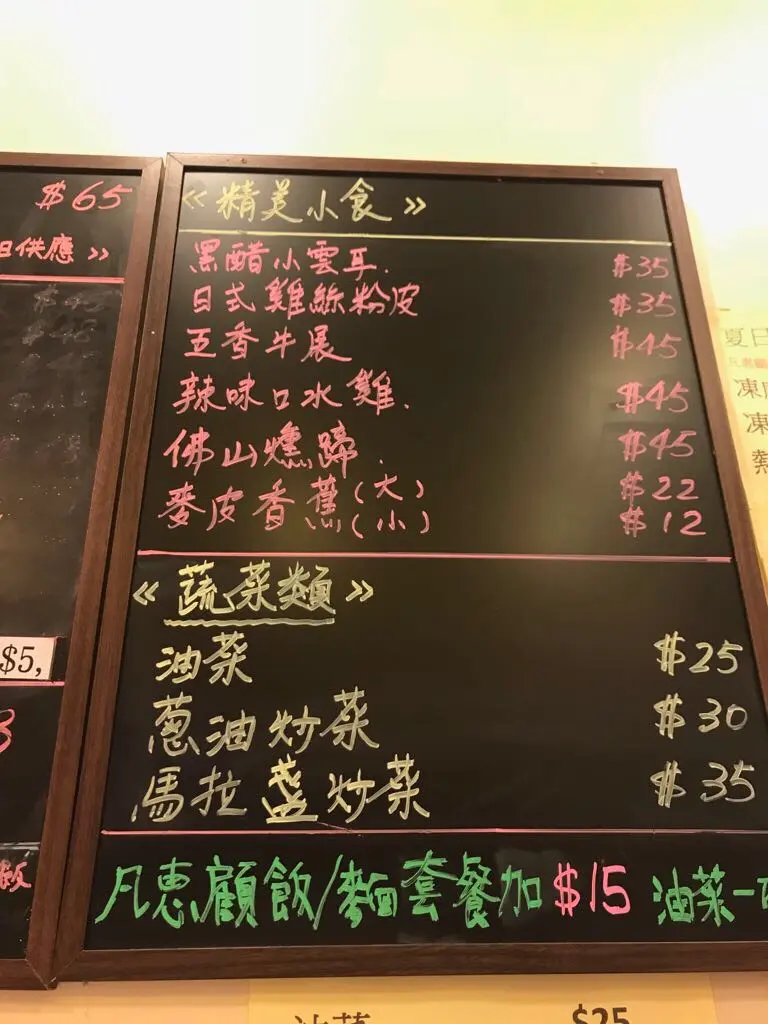 $65
日供應 》
《 精美小食 》
黑醋小雲耳. $35
日式雞絲粉皮 $35
五香牛展 $45
辣味口水雞. $45
佛山燻蹄. $45
麥皮香蕉(大) $22
(小) $12
《 蔬菜類 》
油菜 $25
蔥油炒菜 $30
馬拉盞炒菜 $35
凡惠顧飯/麵套餐加 $15 油菜一
$5,
飯
夏日
凍
凍
熱
油菜 $25